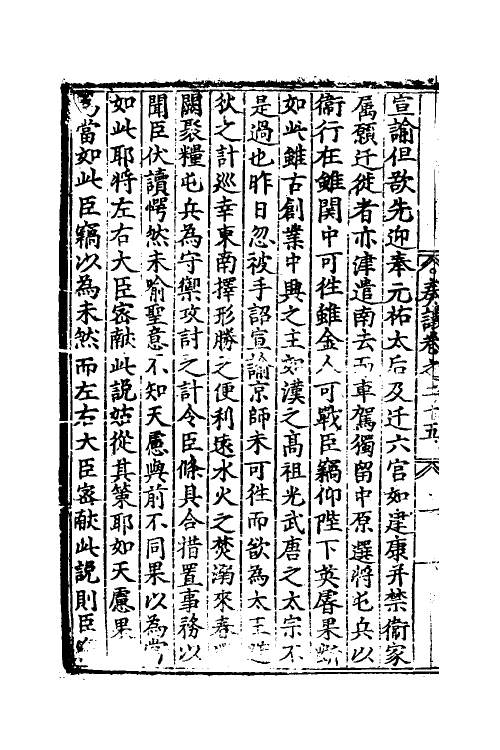 奏議卷之二十五
宣諭但欲先迎奉元祐太后及迁六宫如建康并禁衛家
属願迁徙者亦津遣南去而車駕獨留中原選将屯兵以
衛行在雖関中可徃雖金人可戰臣竊仰陛下英睿果断
如此雖古創業中興之主如漢之髙祖光武唐之太宗不
是過也昨日忽被手詔宣諭京師未可徃而欲為太王避
狄之計廵幸東南擇形勝之便利逺水火之焚溺來春
闗聚糧屯兵為守禦攻討之計令臣條具合措置事務以
聞臣伏讀愕然未喻聖意不知天慮與前不同果以為當
如此耶将左右大臣密献此說姑從其策耶如天慮果
為當如此臣竊以為未然而左右大臣密献此說則臣